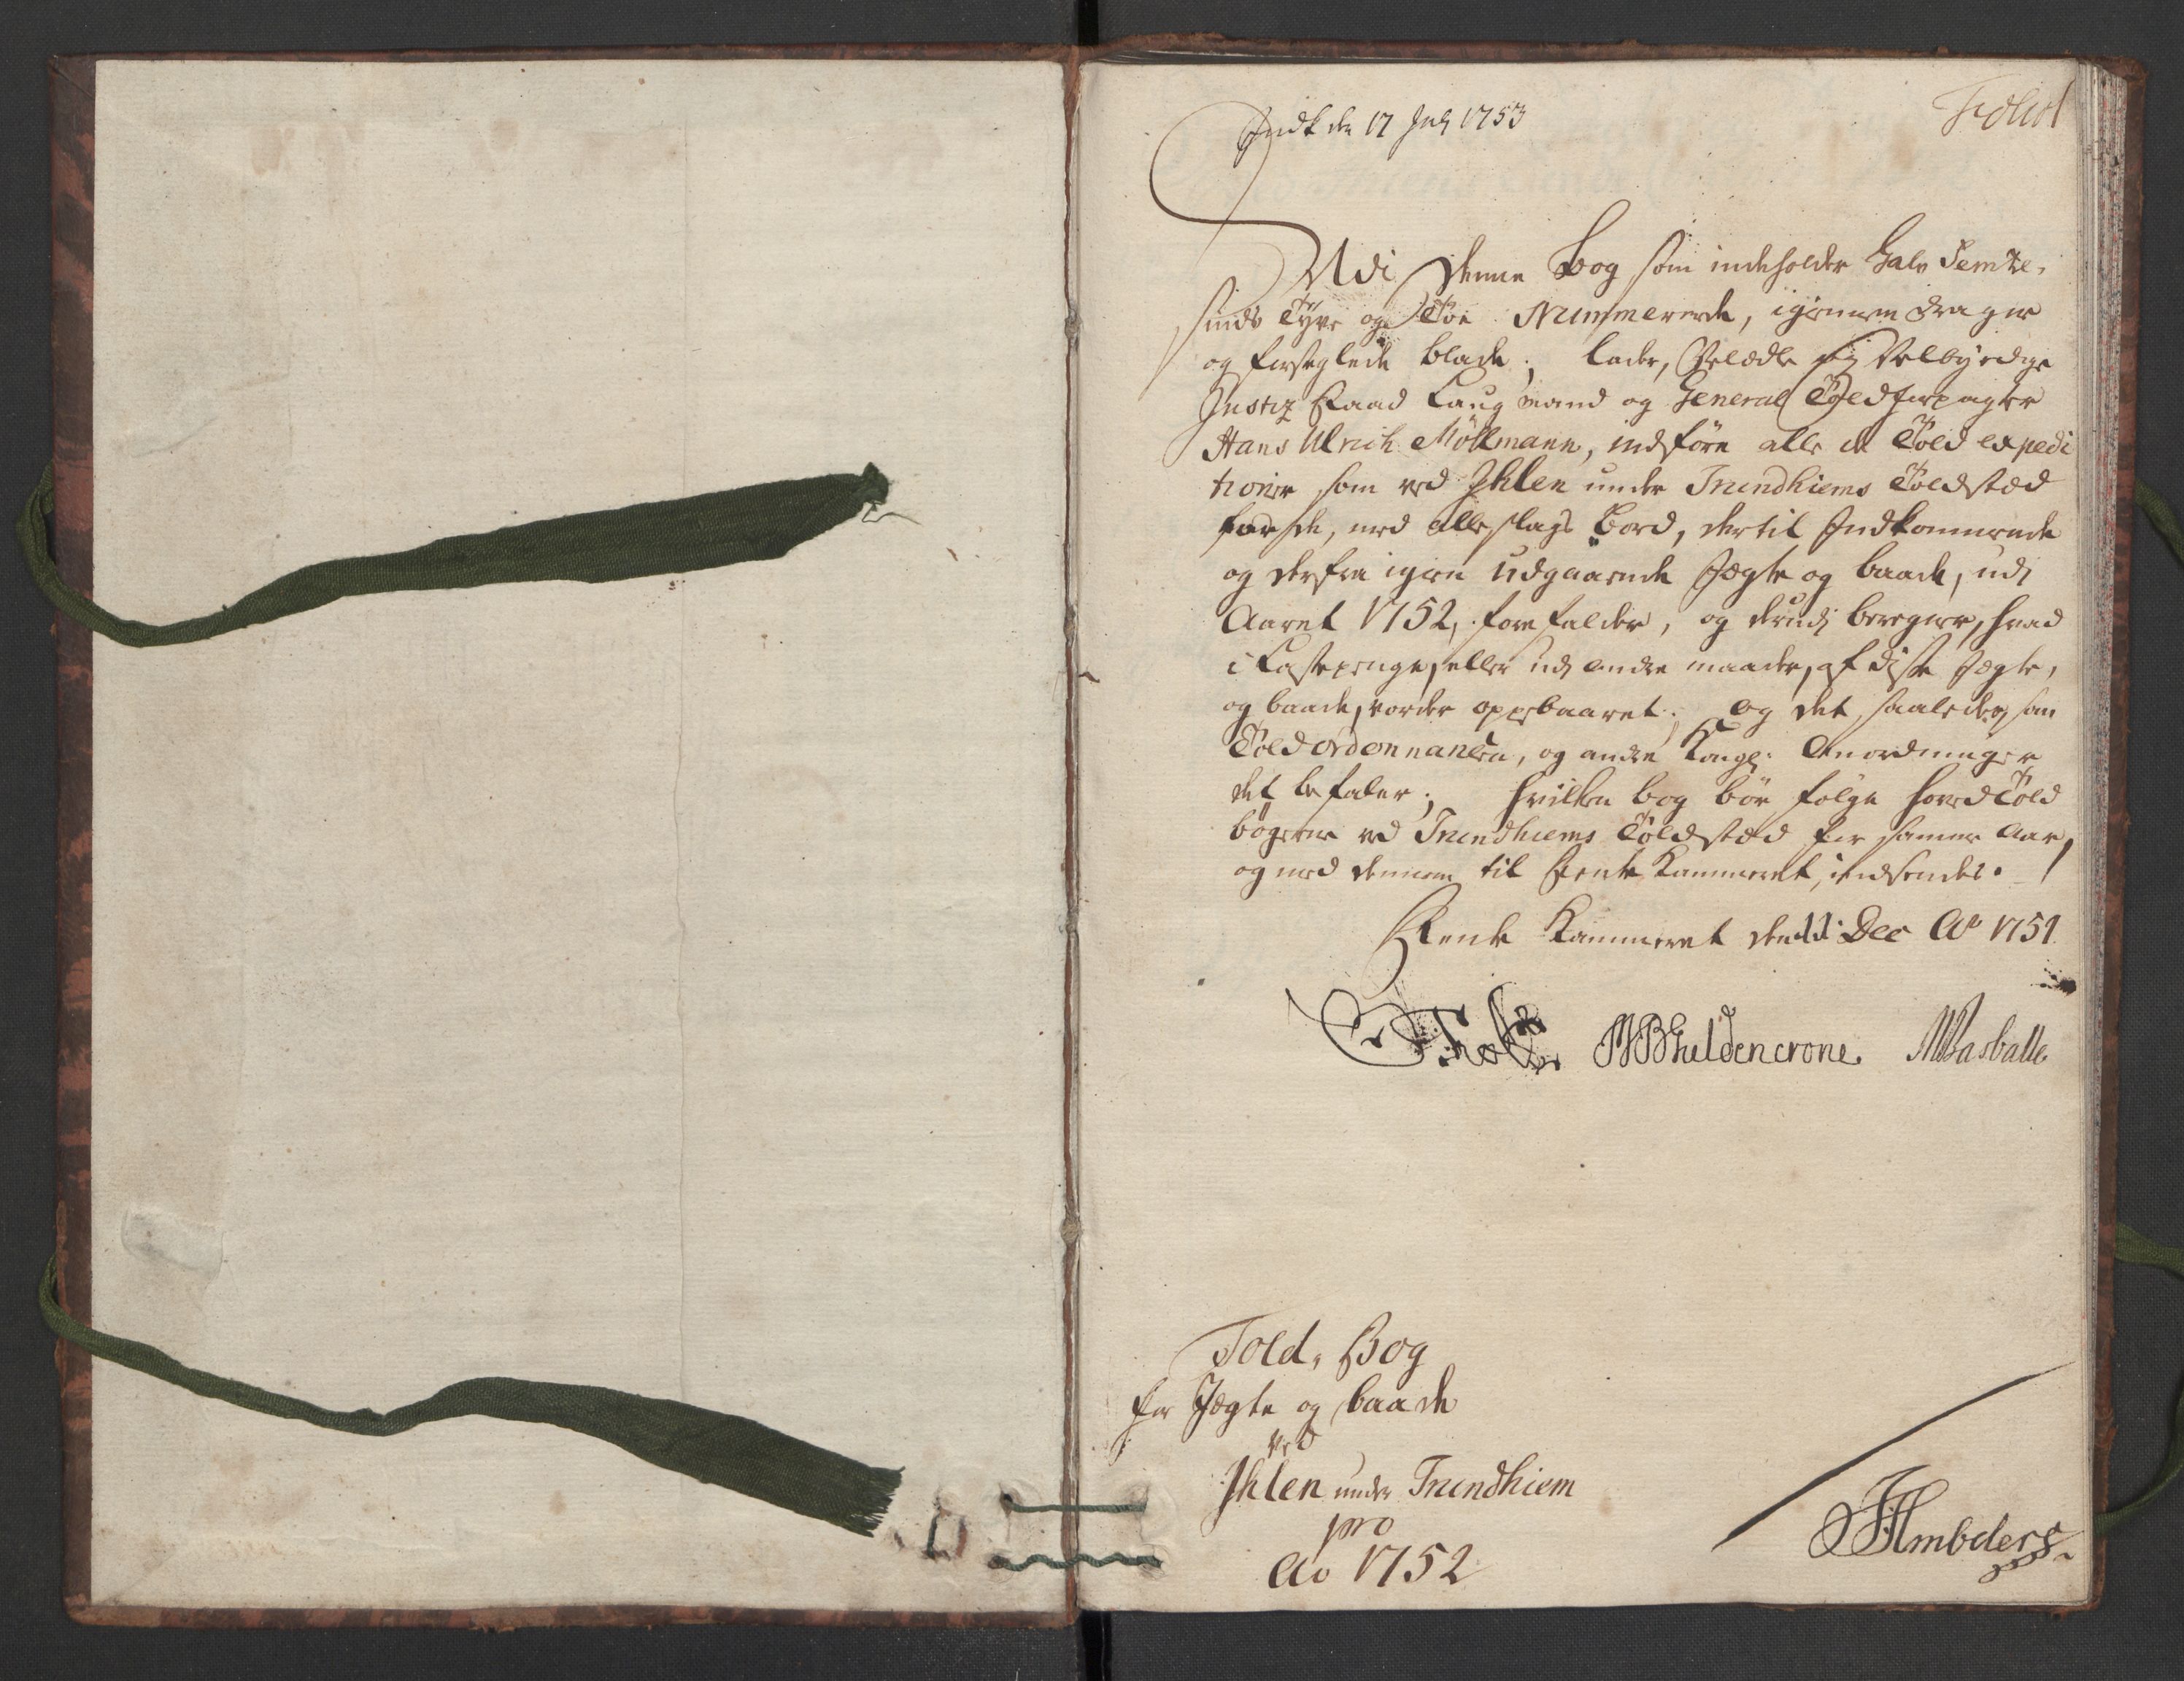 Indk den 17 July 1753
Folio 1
Udi denne Bog som indeholder Halv Femte,
sinds Tyve og Toe Nummererede, igiennem dragne
og forseglede blade; lader, Velædle og Velbyrdige
Justiz Raad Laugmand og General Toldforpagter
Hans Ulrich Möllmann, indföre alle de Told expedi
tioner som ved Ihlen under Trundhiems Toldsted
med alle slags Bord, dertil Indkommende
og derfra igien udgaaende Jægte og baade, udi
Aaret 1752, forefalder, og derudj beregner, hvad
i Lastepenge, eller udj andre maader, af disse Jægte,
og baade, vorder oppebaaret; og det saaledes, som
Told Ordonnancen, og andre Kongl: Anordninger
det befaler; hvilken bog bör fölge hoved Told
bögerne ved Trundhiems Toldsted for samme Aar,
og med dennem til Rente Kammeret, indsendes.
Rente Kammeret den 11 Dec Ao 1751
Holz HHGuldencrone. Wasballe
Told, Bog
for Jægte og baade
ved
Ihlen under Trundhiem
pro
Ao 1752
Ambders